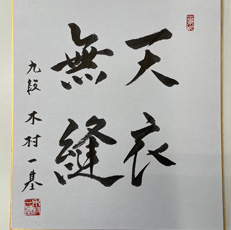 天衣
無縫
九段 木村一基